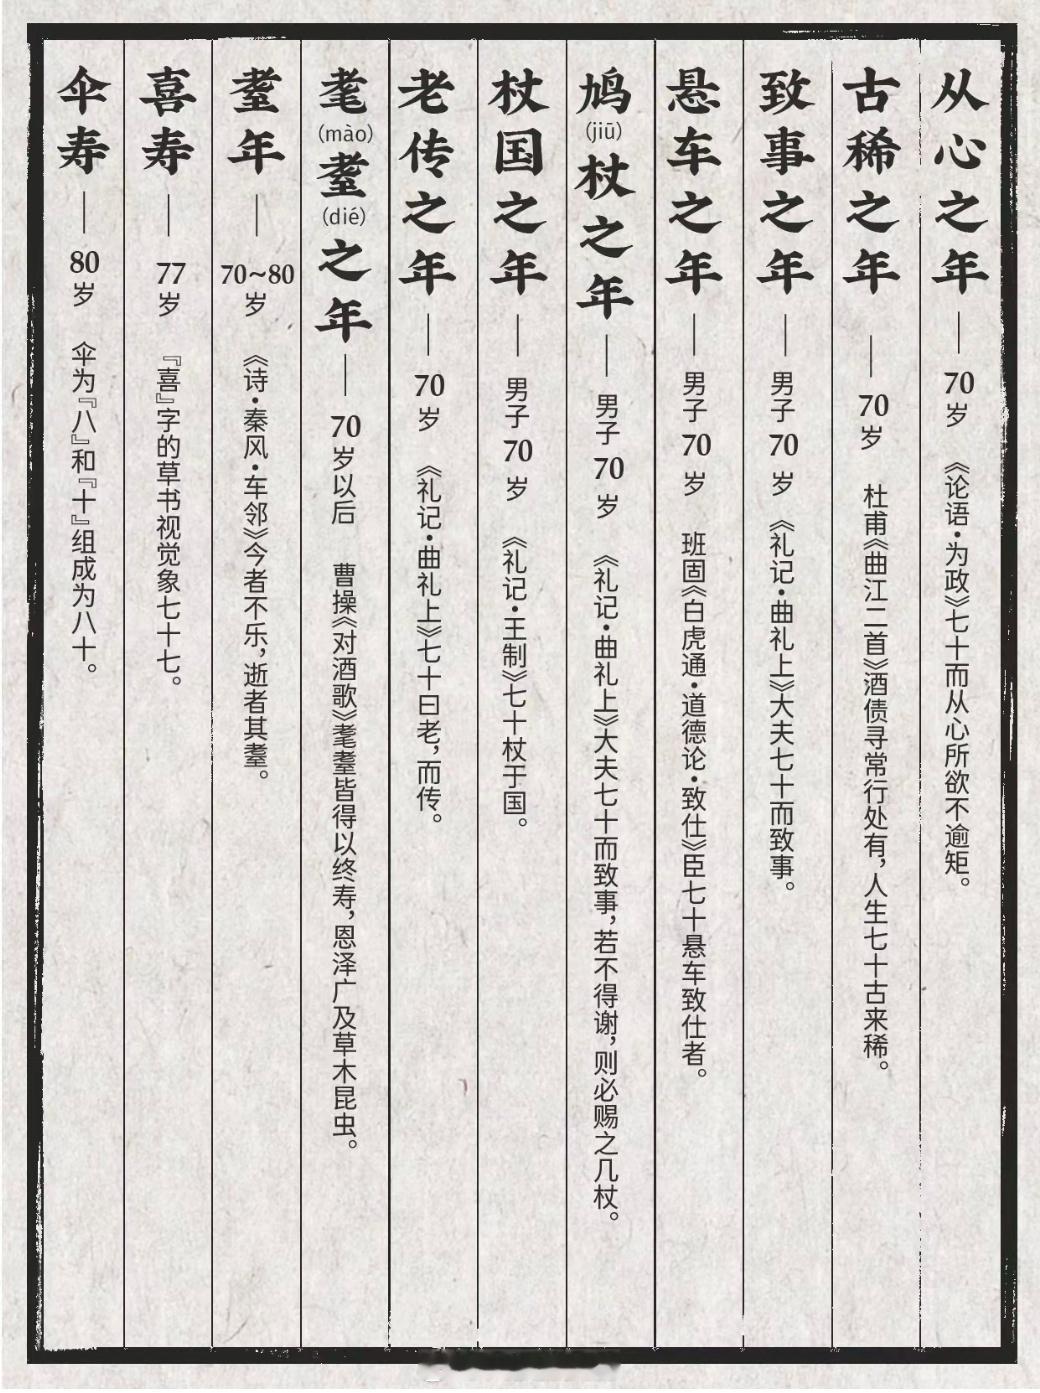 从心之年——70岁 《论语·为政》七十而从心所欲不逾矩。
古稀之年——70岁 杜甫《曲江二首》酒债寻常行处有，人生七十古来稀。
致事之年——男子70岁 《礼记·曲礼上》大夫七十而致事。
悬车之年——男子70岁 班固《白虎通·道德论·致仕》臣七十悬车致仕者。
鸠(jiū)杖之年——男子70岁 《礼记·曲礼上》大夫七十而致事，若不得谢，则必赐之几杖。
杖国之年——男子70岁 《礼记·王制》七十杖于国。
老传之年——70岁 《礼记·曲礼上》七十曰老，而传。
耄(mào)耋(dié)之年——70岁以后 曹操《对酒歌》耄耋皆得以终寿，恩泽广及草木昆虫。
耋年——70~80岁 《诗·秦风·车邻》今者不乐，逝者其耋。
喜寿——77岁 『喜』字的草书视觉象七十七。
伞寿——80岁 伞为『八』和『十』组成为八十。